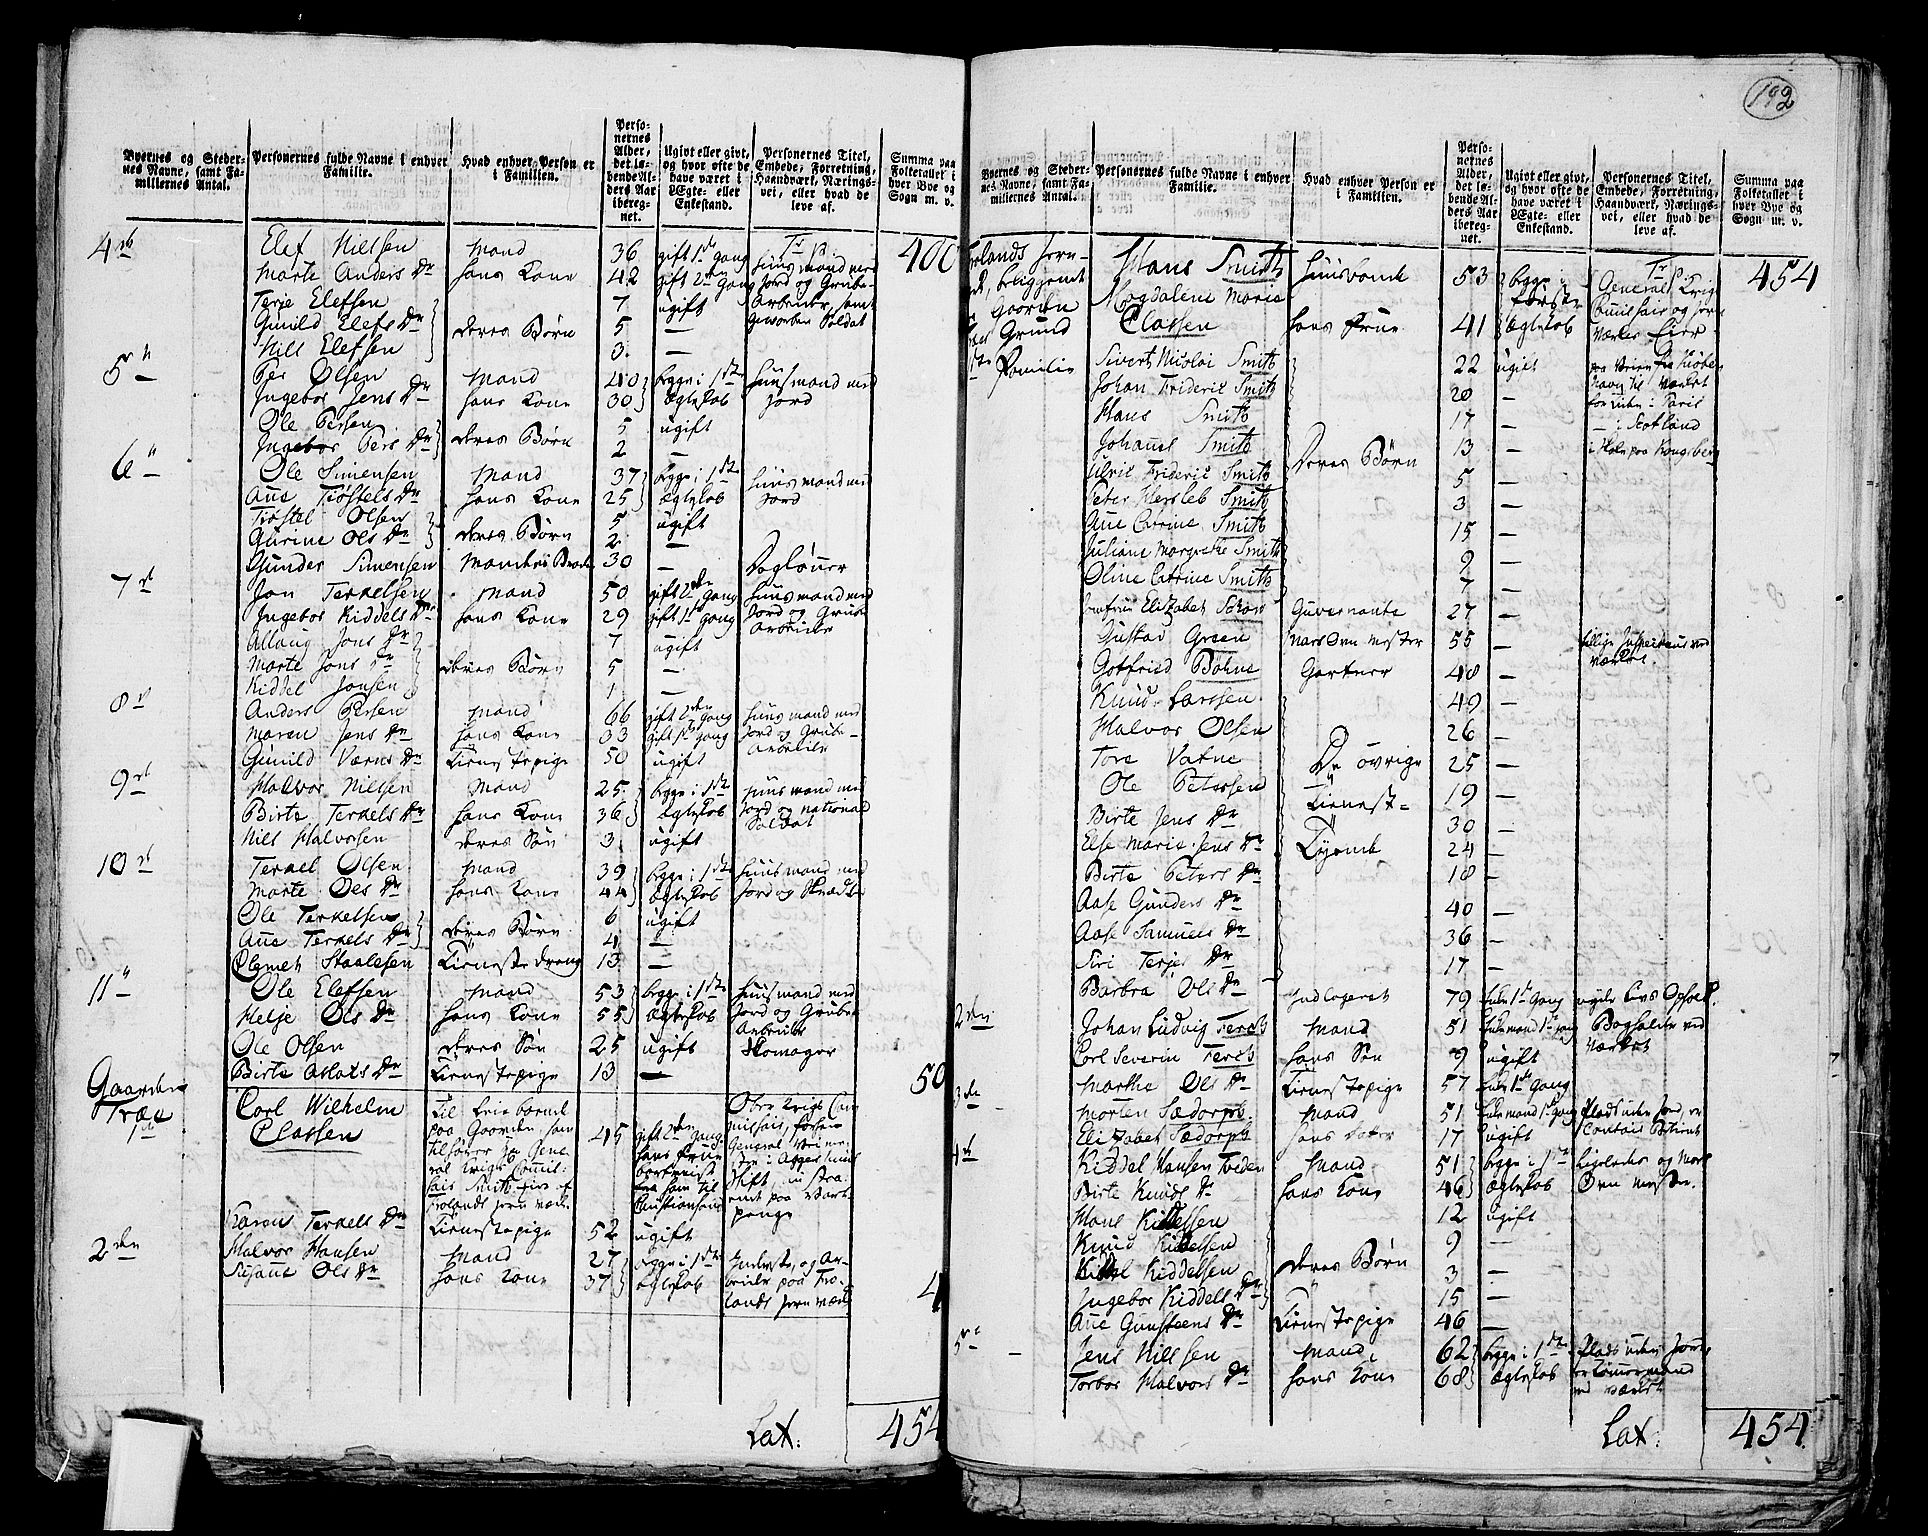 192
Byernes og Stedernes Navne, samt Familiernes Antal.
Personernes fulde Navne i enhver Familie.
Hvad enhver Person er i Familien.
Personernes Alder, det løbende Alders Aar iberegnet.
Ugivt eller givt, og hvor ofte de have været i Ægte- eller Enkestand.
Personernes Titel, Embede, Forretning, Haandværk, Næringsvei, eller hvad de leve af.
Summa paa Folketallet i hver Bye og Sogn m. v.
Tr p: 400
4de Elef Nielsen Mand 36 gift 1de gang Huusmand med
Marte Anders Dr hans Kone 42 gift 2den gang Jord og Grube-
Terje Elefsen 7 ugift Arbeider, samt
Gunild Elefs Dr deres Børn 5 — Geworben Soldat
Nils Elefsen 3 —
5te Per Olsen Mand 40 begge i 1ste Huusmand med
Ingebor Jens Dr hans Kone 30 Ægteskab Jord
Ole Persen 5 ugift
Ingebor Pers Dr deres Børn 2 —
6te Ole Simensen Mand 37 begge i 1ste Huusmand med
Ane Tiøstels Dr hans Kone 25 Ægteskab Jord
Tiøstel Olsen 5 ugift
Gurine Ols Dr deres Børn 2 —
Gunder Simensen Mandens Broder 30 — Dagløner
7de Jon Terkelsen Mand 50 gift 2den gang Huusmand med
Ingebor Kiddels Dr hans Kone 29 gift 1ste gang Jord og Grube
Allaug Jons Dr 7 ugift Arbeider
Marte Jons Dr deres Børn 5 —
Kiddel Jonsen 1 —
8de Anders Persen Mand 66 gift 2den gang Huusmand med
Maren Jens Dr hans Kone 33 gift 1ste gang Jord og Grube-
Gunild Værns Dr Tienestepige 50 ugift Arbeider
9de Halvor Nielsen Mand 25 begge i 1ste Huusmand med
Birte Terkels Dr hans Kone 36 Ægteskab Jord og national
Nils Halvorsen deres Søn 3 ugift Soldat
10de Terkel Olsen Mand 39 begge i 1ste Huusmand med
Marte Ols Dr hans Kone 44 Ægteskab Jord og Skrædder
Ole Terkelsen 6 ugift
Ane Terkels Dr deres Børn 4 —
Olemet Staalesen Tieneste dreng 13 —
11te Ole Elefsen Mand 53 begge i 1ste Huusmand med
Helje Ols Dr hans Kone 55 Ægteskab Jord og Grube
Ole Olsen deres Søn 25 ugift Skomager
Birte Aslaks Dr Tienestepige 13 — 50
Gaarden
Træe
1ste Carl Wilhelm
Classen 45 gift 2den gang
Karen Terkels Dr Tienestepige 52 ugift
2den Halvor Hansen Mand 27 begge i 1ste Inderste, og Ar-
Susanne Ols Dr hans Kone 37 Ægteskab beider paa Fro-
lands Jern værk 4
Lat: 454
Byernes og Stedernes Navne, samt Familiernes Antal.
Personernes fulde Navne i enhver Familie.
Hvad enhver Person er i Familien.
Personernes Alder, det løbende Alders Aar iberegnet.
Ugivt eller givt, og hvor ofte de have været i Ægte- eller Enkestand.
Personernes Titel, Embede, Forretning, Haandværk, Næringsvei, eller hvad de leve af.
Summa paa Folketallet i hver Bye og Sogn m. v.
Tr p: 454
Hans Smith Huusbonde 53 begge General Krigs
Magdalene Marie første
Classen hans Frue 41 Ægteskab Værkets Eier
Familie Sivert Nicolai Smith 22 ugift
Johan Friderik Smith 20 — for tiden i Paris
Hans Smith 17 — — i Scotland
Johanes Smith 13 — i Skole paa Kongsberg
Ulrik Friderik Smith Deres Børn 5 —
Peter Hersleb Smith 3 —
Ane Catrine Smith 15 —
Juliane Margrethe Smith 9 —
Oline Catrine Smith 7 —
Jomfru Elizabet Schow Guvernante 27 —
Gustav Green Mars Ovn mester 55 —
Gotfried Bøhne Gartner 48 —
Knud Larssen 49 —
Halvor Olsen 26 —
Tore Vatne De øvrige 25 —
Ole Petersen Tieneste- 19 —
Birte Jens Dr 30 —
Else Marie Jens Dr Tyende 24 —
Birte Peters Dr 18 —
Aase Gunders Dr 40 —
Aase Samuels Dr 36 —
Siri Terjes Dr 17 —
Barbra Ols Dr Indlogeret 79 Enke 1ste gang
2den Johan Ludvig Ferch Mand 51 Enkemand 1ste gang Bogholder ved
Carl Severin Ferch hans Søn 9 ugift Værket
Marthe Ols Dr Tienestepige 57 Enke 1ste gang
3die Morten Sædorph Mand 51 Enkemand 1ste gang
Elizabet Sædorph hans datter 17 ugift
4de Kiddel Hansen Mand 51 begge i 1ste
Birte Knuds Dr hans Kone 46 Ægteskab Ovn mester.
Hans Kiddelsen 12 ugift
Knud Kiddelsen 9 —
Kittel Kiddelsen deres Børn 3 —
Ingebor Kiddels Dr 15 —
Ane Gunsteens Dr Tienestepige 46 —
5te Jens Nilssen Mand 62 begge i 1ste Plads uden Jord
Torbor Halvors Dr hans Kone 68 Ægteskab er Tømermand
ved Værket
Lat: 454